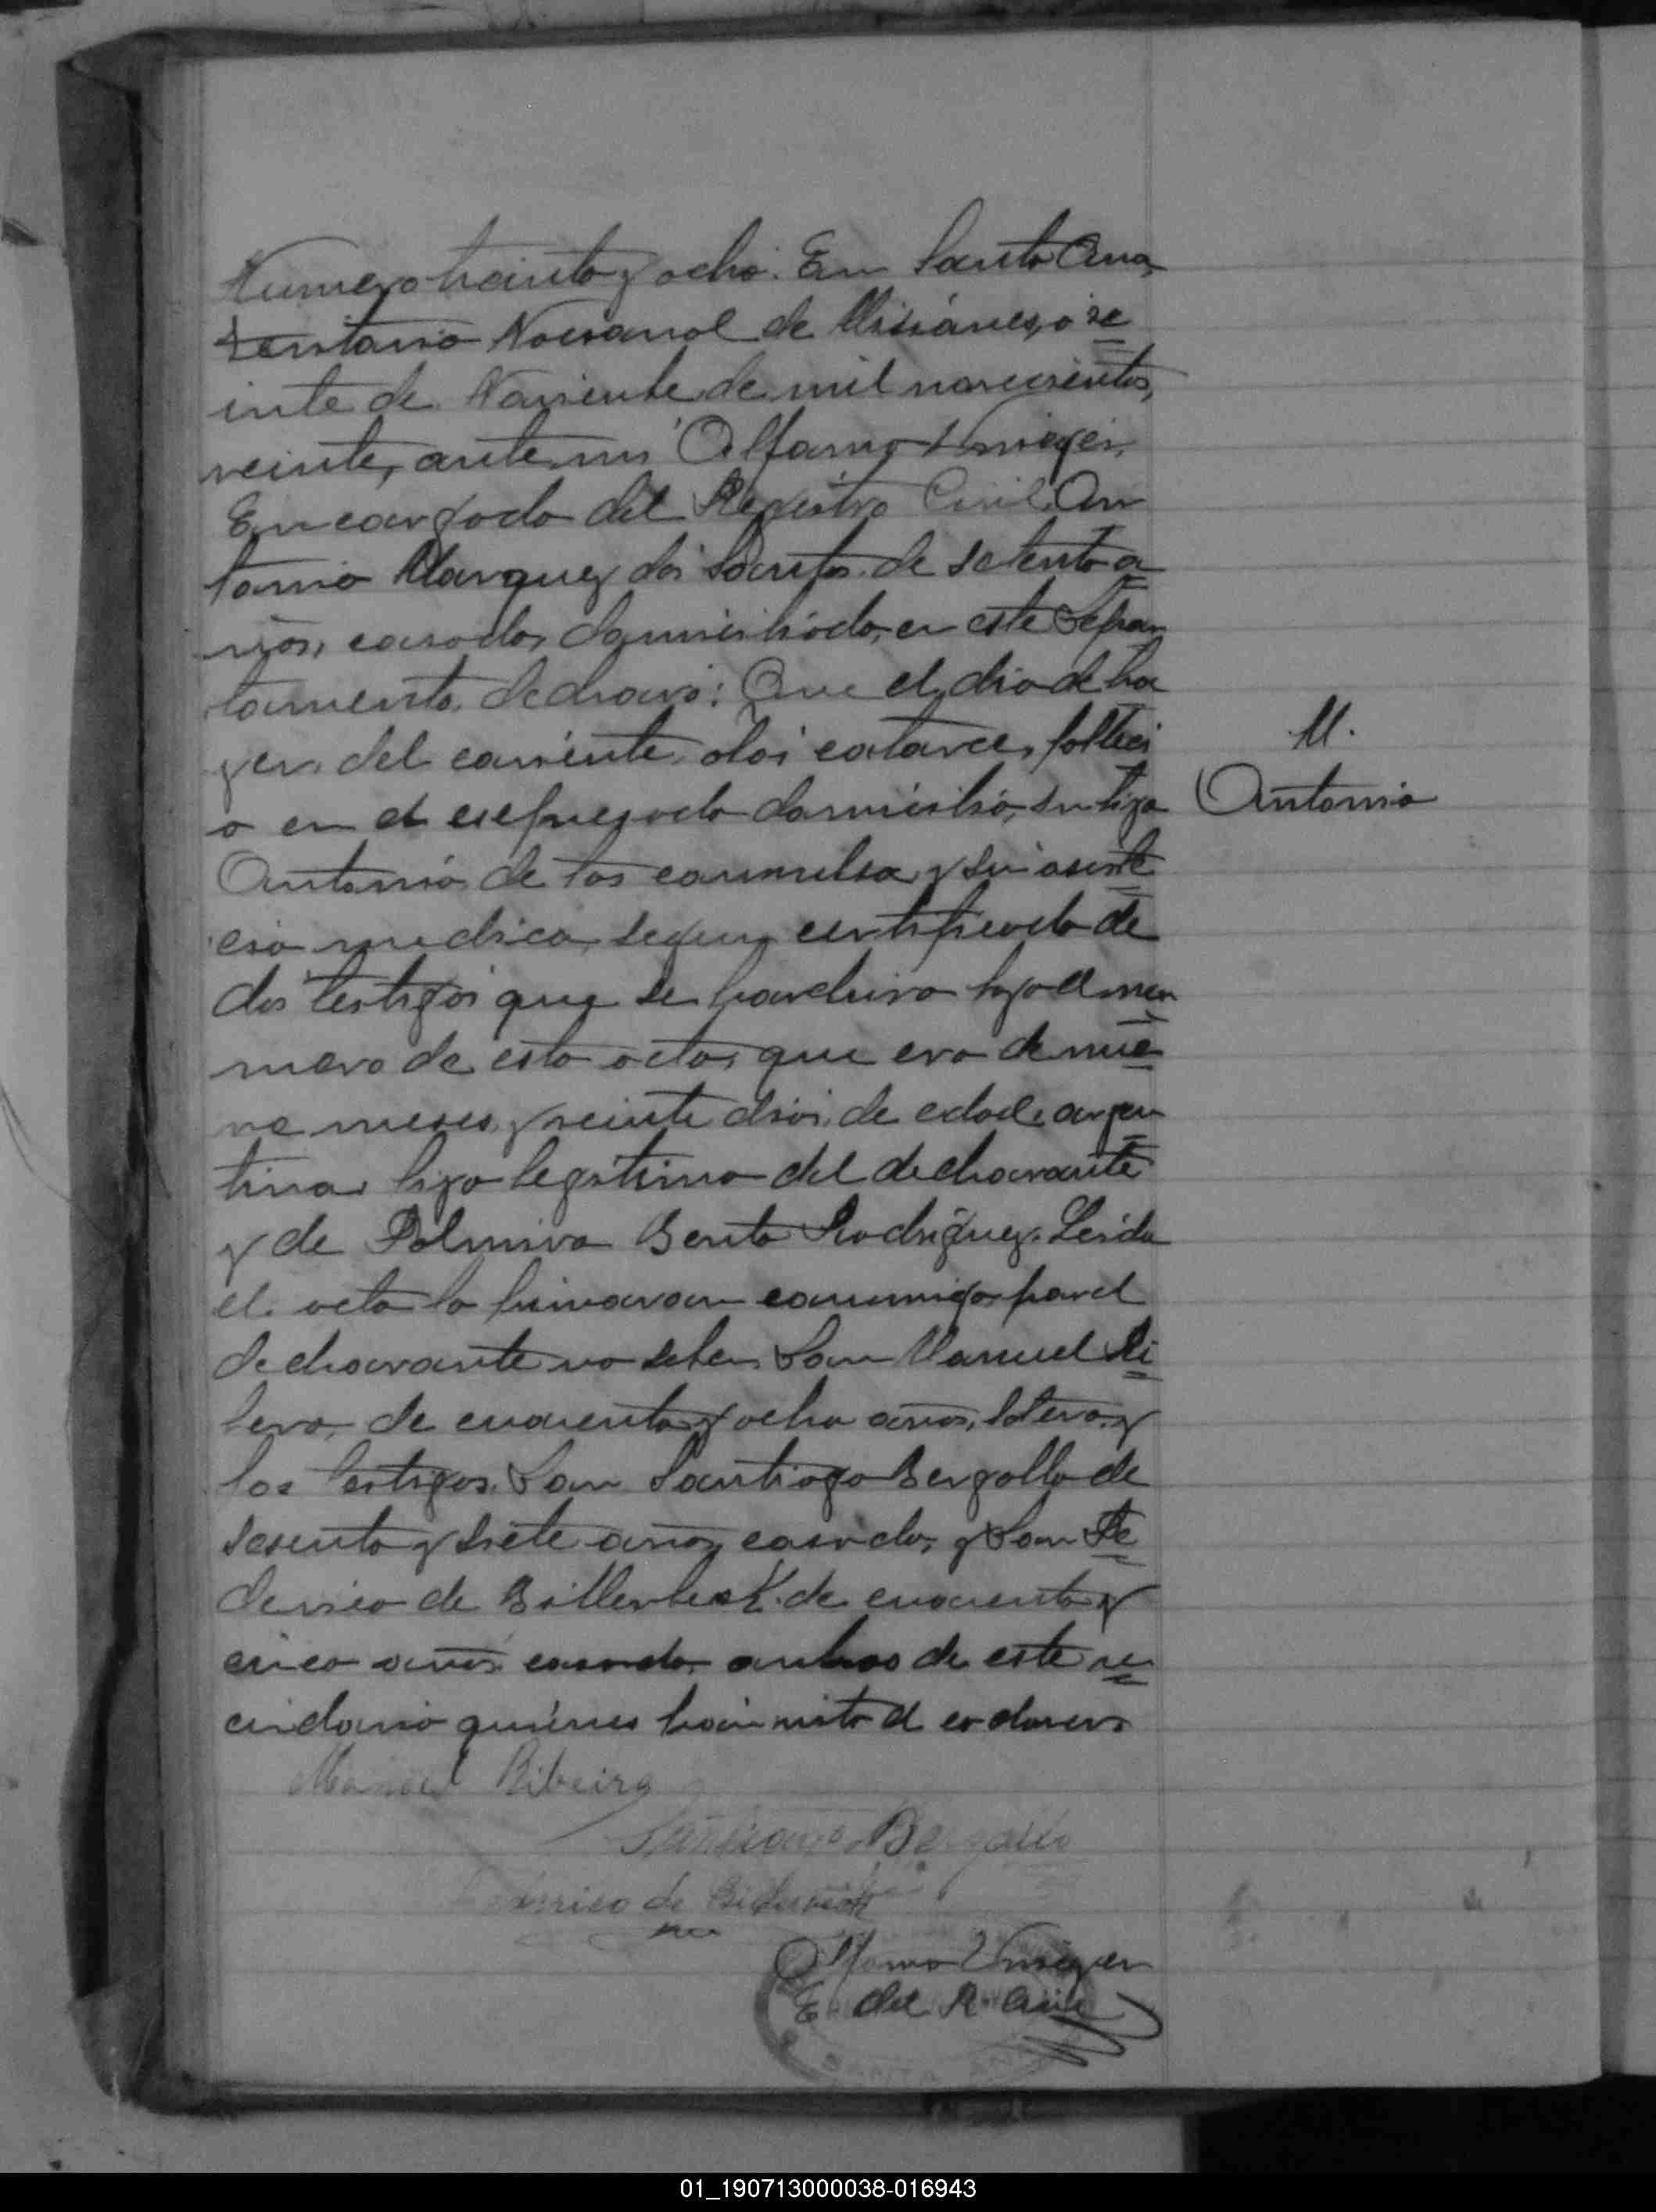 Numero treinta y ocho. En Santa Ana,
territorio Nacional de Misiones, a ve
inte de Noviembre de mil novecientos
veinte, ante mi Alfonso
Encargado del Registro Civil, An
tonio Marquez dos Santos de setenta a
ños, casado, domiciliado en este Depar
tamento, declaró: Que el dia de ha
yer, del corriente, a las catorce, falleci
o en el expresado domicilio, su hijo
Antonio de tos convulsa y sin asiste
cia medica, segun certificado de
dos testigos que se archiva bajo el mi
numero de esta acta, que era de nue
ve meses y veinte dias, de edad, argen
tino, hijo legitimo del declarante
y de Palmira Bento Rodriguez. Leida
el acta la firmaron conmigo por el
declarante no saber, Don Manuel Ri
bero, de cuarenta y ocho años, soltero, y
los testigos, Don Santiago Bergallo de
sesenta y siete años, casado, y Don Fe
derico de Billerbeck de cuarenta y
cinco años casado ambos de este ve
cindario quienes han visto el cadaver.
M.
Antonio
Manoel Ribeiro
Santiago Bergallo
Federico de
Alfonso
E. del R. Civil
01_190713000038-016943